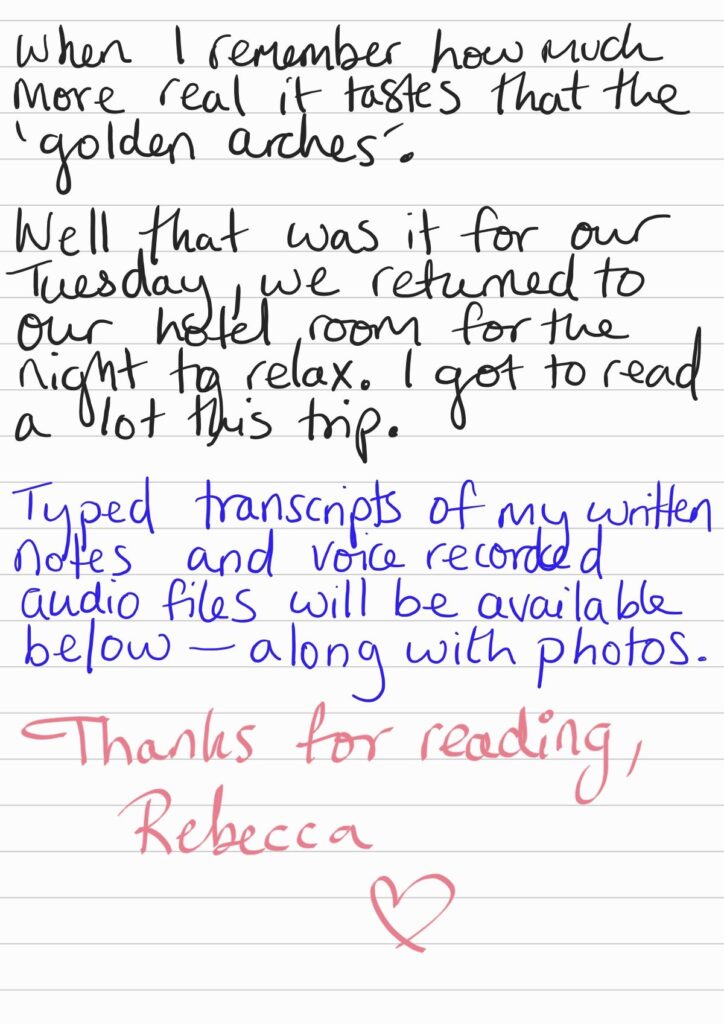 When I remember how much
more real it tastes that the
'golden arches'.
Well that was it for our
Tuesday, we returned to
our hotel room for the
night to relax. I got to read
a lot this trip.
Typed transcripts of my written
notes and voice recorded
audio files will be available
below — along with photos.
Thanks for reading,
Rebecca